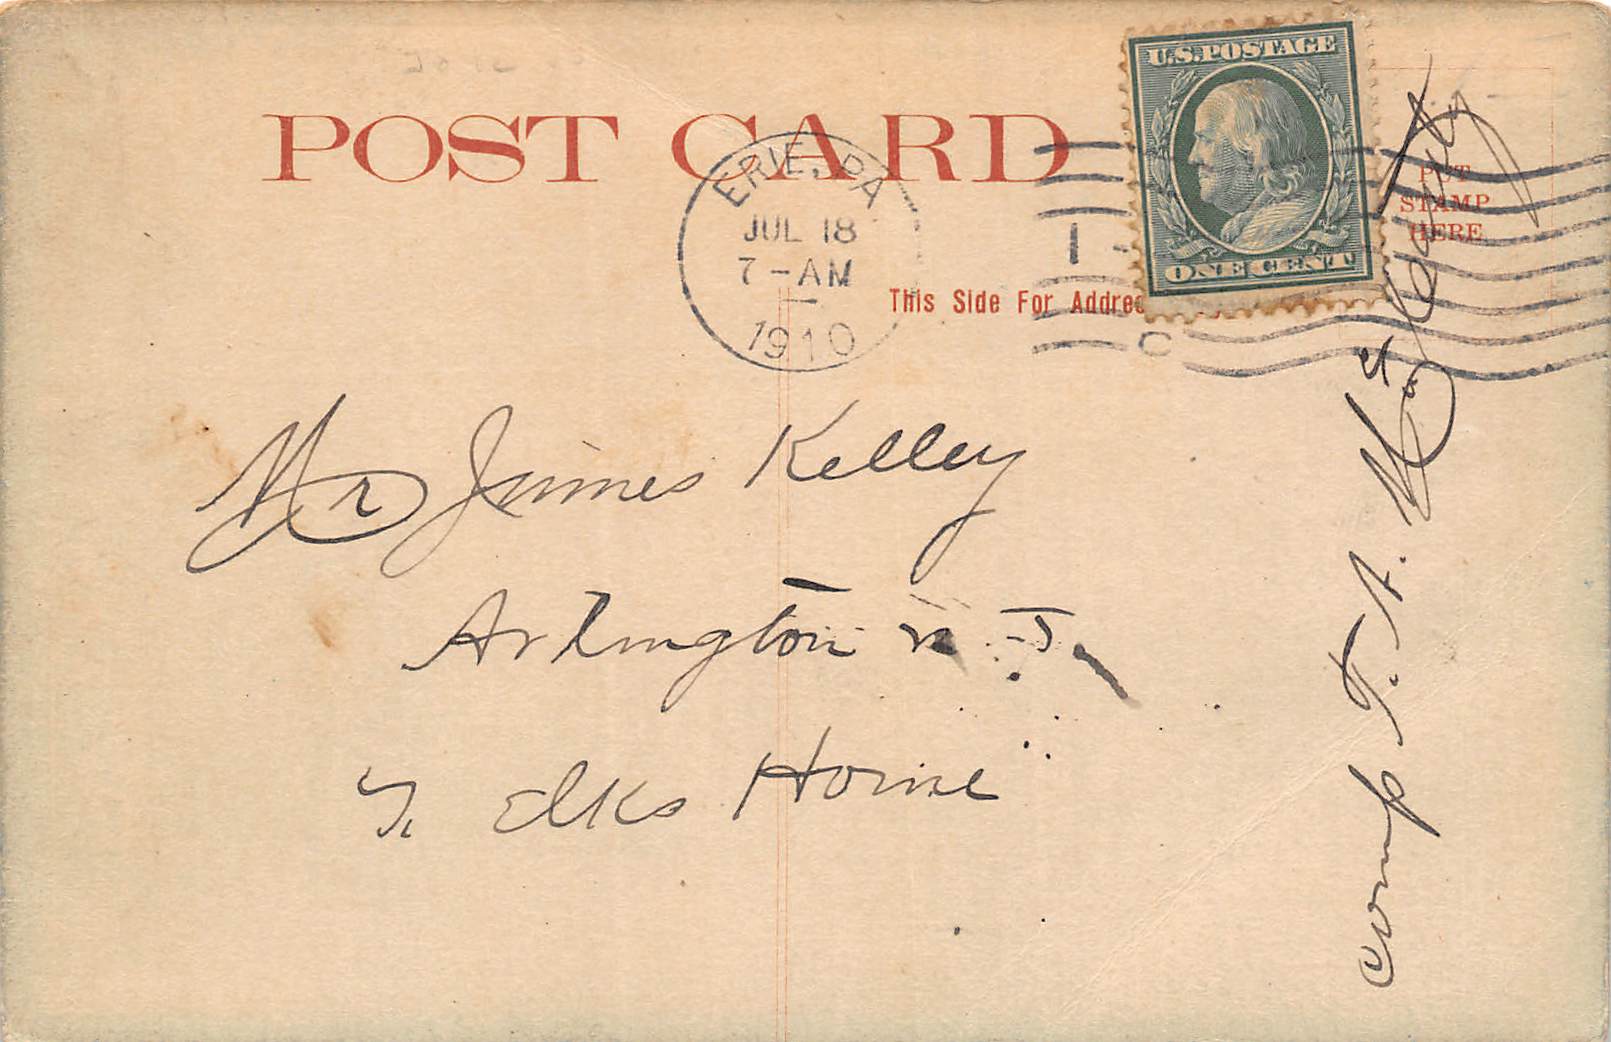 POST CARD
ERIE, PA
JUL 18
7-AM
1910
1
C
U.S. POSTAGE
ONE CENT
PUT
STAMP
HERE
This Side For Addres
Mr James Kelley
Arlington N. J.
Elks Home
Comp T. A.